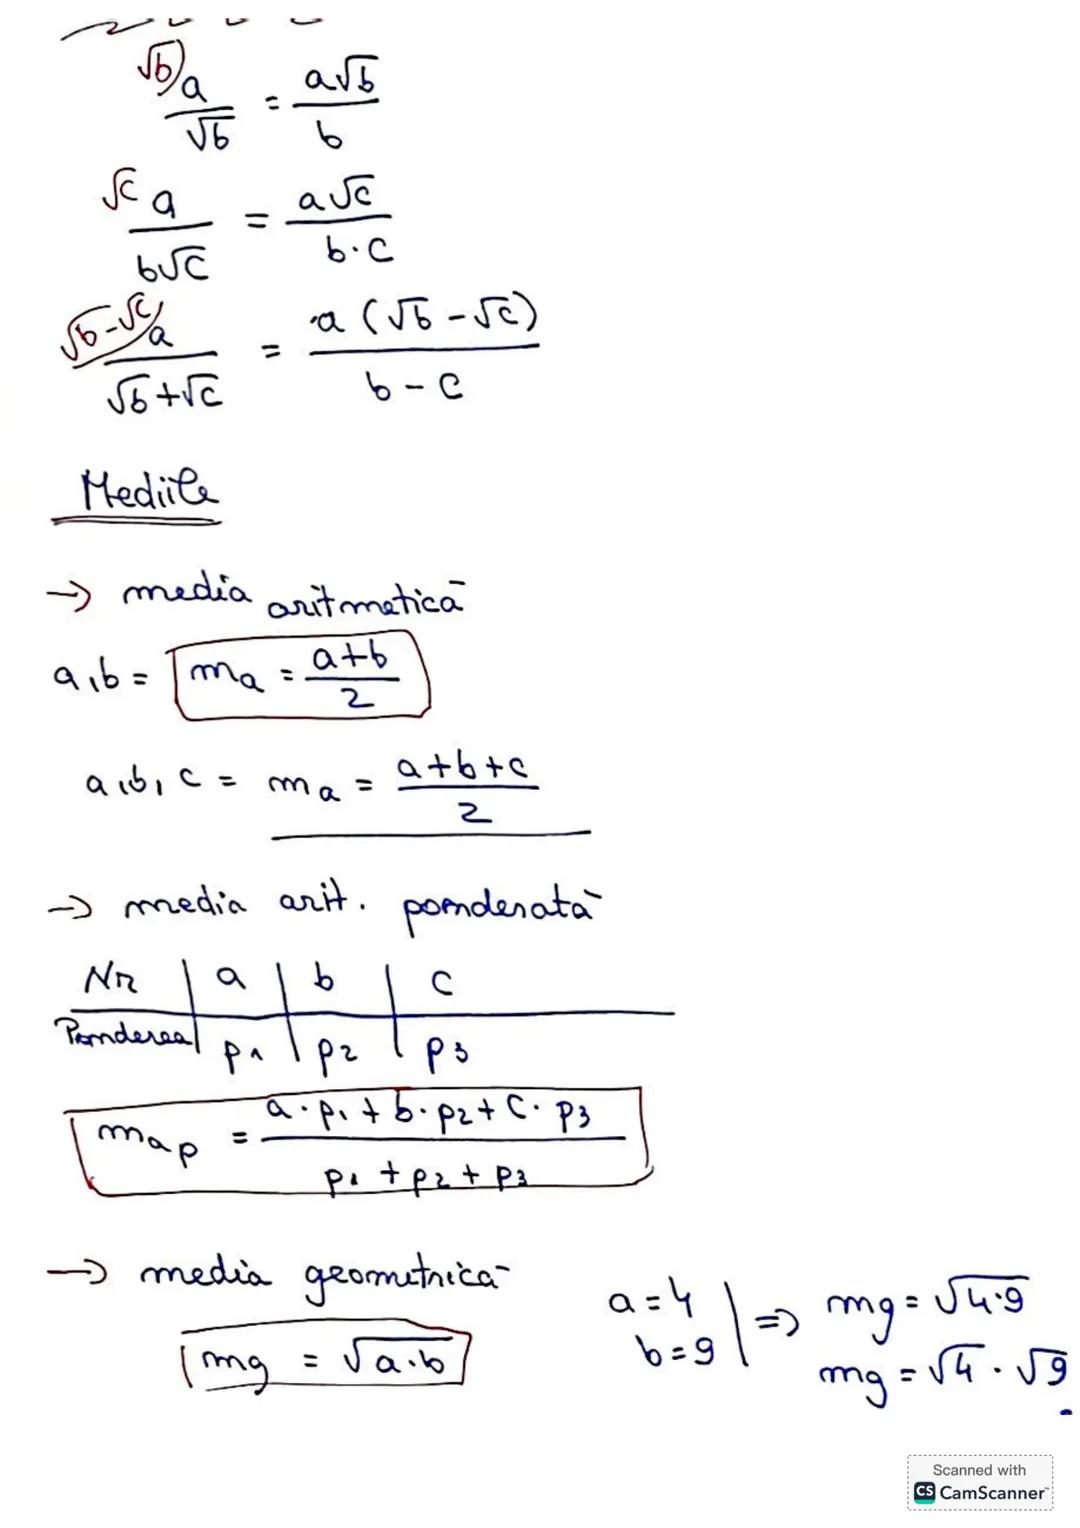 √b) a/√b = a√b/b
√c a/b√c = a√c/b·c
√b-√c) a/√b+√c = a(√b-√c)/b-c
Mediile
→ media aritmetică
a,b = ma = a+b/2
a,b, c = ma = a+b+c/2
→ media arit. ponderată
Nr | a | b | c
Ponderea | p1 | p2 | p3
map = a·p1+b·p2+c·p3/p1+p2+p3
→ media geometrică
mg = √a·b
a=4 | => mg = √4·9
b=9 | mg = √4·√9
Scanned with
CS CamScanner